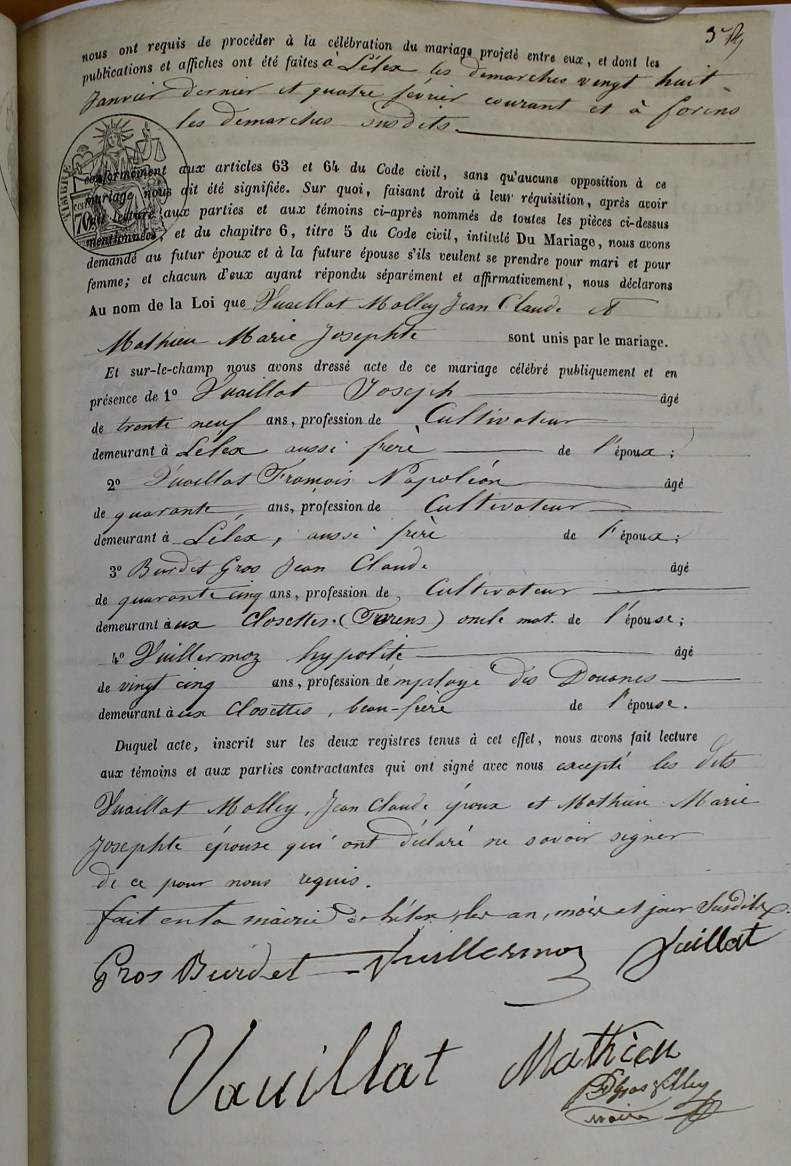 nous ont requis de procéder à la célébration du mariage projeté entre eux, et dont les
publications et affiches ont été faites à Lélex les demarches vingt huit
Janvier dernier et quatre février courant et à forens
les demarches susdits.
TIMBRE
conformément aux articles 63 et 64 du Code civil, sans qu'aucune opposition à ce
mariage nous ait été signifiée. Sur quoi, faisant droit à leur réquisition, après avoir
fait lecture aux parties et aux témoins ci-après nommés de toutes les pièces ci-dessus
mentionnées, et du chapitre 6, titre 5 du Code civil, intitulé Du Mariage, nous avons
demandé au futur époux et à la future épouse s'ils veulent se prendre pour mari et pour
femme; et chacun d'eux ayant répondu séparément et affirmativement, nous déclarons
Au nom de la Loi que Vuaillat Molley Jean Claude et
Mathieu Marie Josephte sont unis par le mariage.
Et sur-le-champ nous avons dressé acte de ce mariage célébré publiquement et en
présence de 1º Vuaillat Joseph âgé
de trente neuf ans, profession de Cultivateur
demeurant à Lélex aussi frère de l'époux;
2º Vuaillat François Napoléon âgé
de quarante ans, profession de Cultivateur
demeurant à Lélex, aussi frère de l'époux;
3º Burdet Gros Jean Claude âgé
de quarante cinq ans, profession de Cultivateur
demeurant aux Closettes (Forens) oncle mat. de l'épouse;
4º Vuillermoz hypolite âgé
de vingt cinq ans, profession d'employé des Douanes
demeurant aux Closettes, beau-frère de l'épouse.
Duquel acte, inscrit sur les deux registres tenus à cet effet, nous avons fait lecture
aux témoins et aux parties contractantes qui ont signé avec nous excepté les dits
Vuaillat Molley, Jean Claude époux et Mathieu Marie
Josephte épouse qui ont déclaré ne savoir signer
de ce pour nous requis.
fait en la mairie de Lélex les an, mois et jour susdits.
Gros Burdet Vuillermoz Vuillat
Vauillat Mathieu
maire